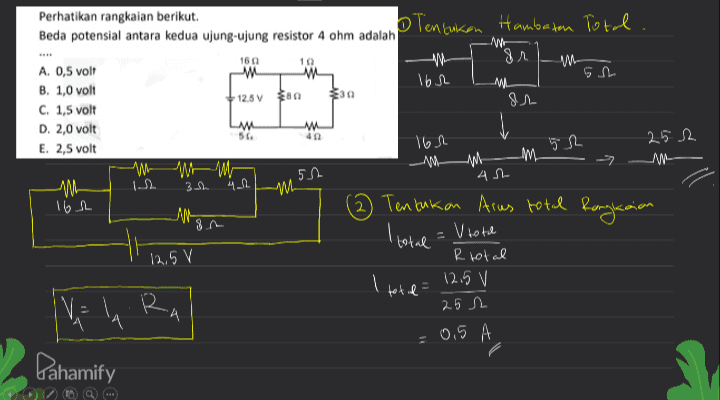 Perhatikan rangkaian berikut.
Beda potensial antara kedua ujung-ujung resistor 4 ohm adalah
....
A. 0,5 volt
B. 1,0 volt
C. 1,5 volt
D. 2,0 volt
E. 2,5 volt
16 Ω 1 Ω
12,5 V 8 Ω 3 Ω
4 Ω
1 Ω 3 Ω 4 Ω 5 Ω
16 Ω
8 Ω
12,5 V
V4 = I4 . R4
① Tentukan Hambatan Total .
8 Ω
16 Ω 5 Ω
8 Ω
16 Ω 5 Ω 25 Ω
4 Ω
② Tentukan Arus total Rangkaian
I total = V total
R total
I total = 12,5 V
25 Ω
= 0,5 A
Pahamify